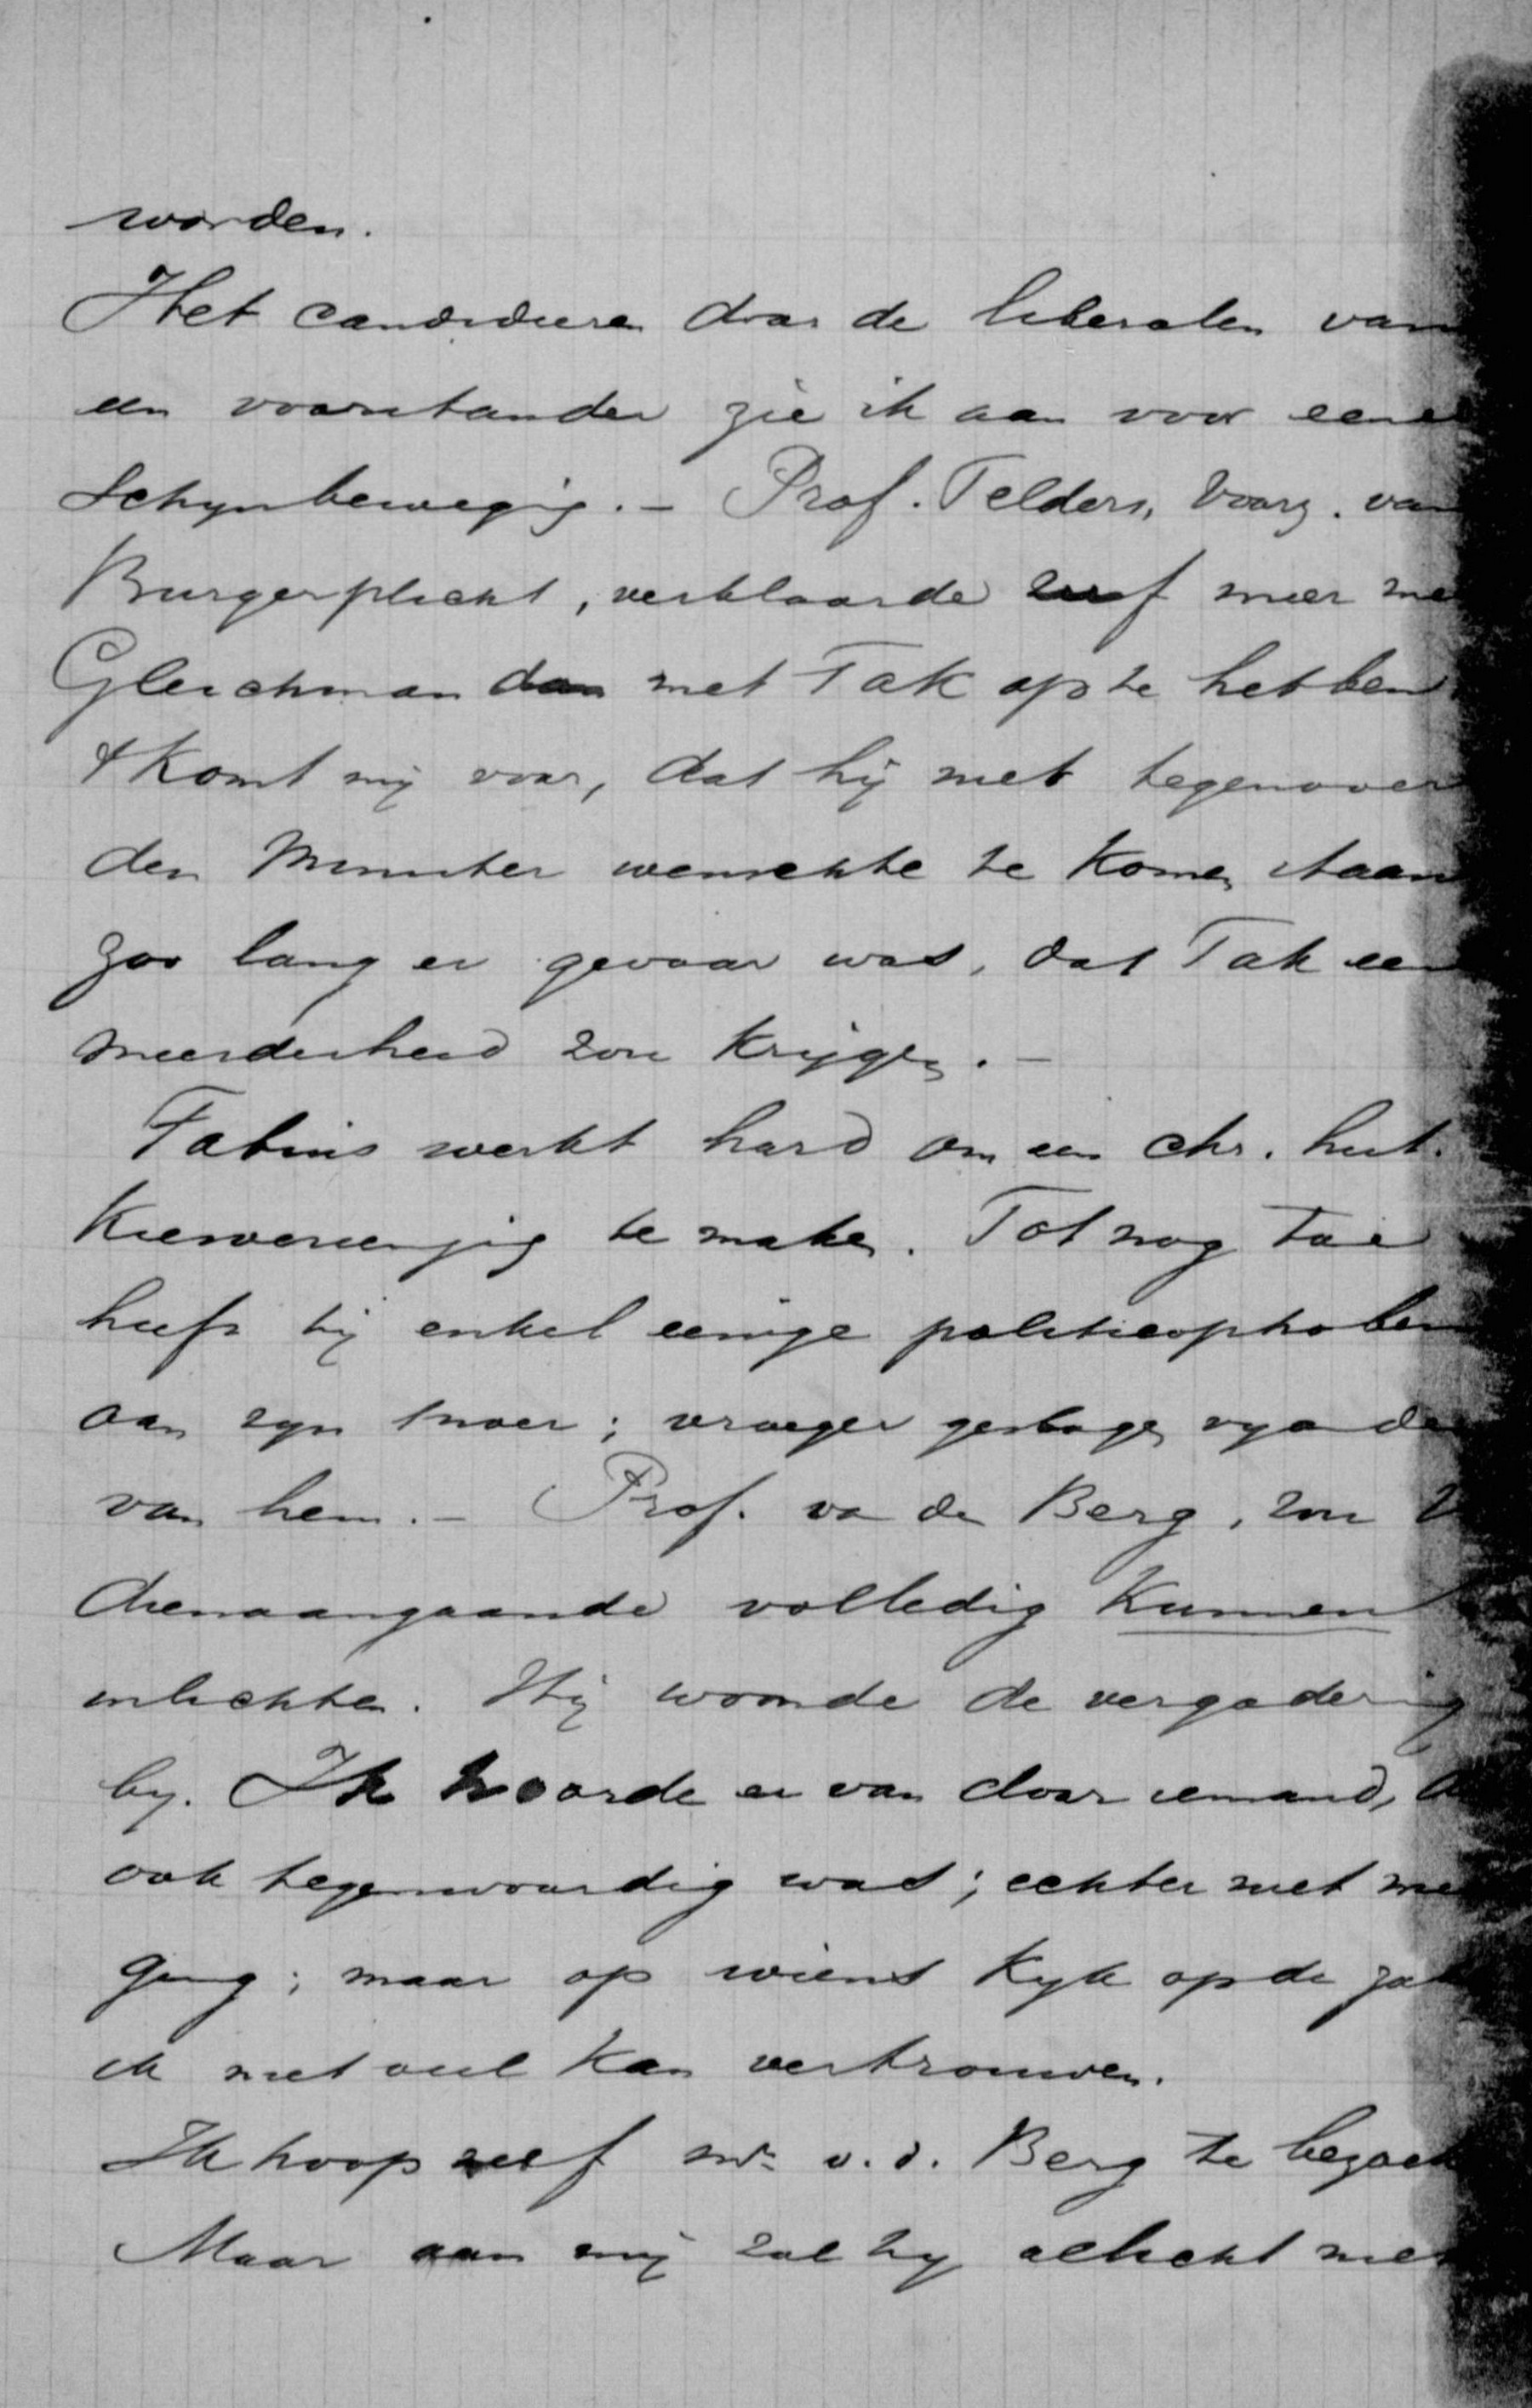 worden.
Het candideeren door de liberalen van
een voorstander zie ik aan voor eene
Schynbeweging. – Prof. Telders, Voorz. van
Burgerplicht, verklaarde meer me
Gleichman dan met Tak op te hebben
't Komt mij voor, dat hij niet tegenover
den Minister wenschte te Komen staan
zoo lang er gevaar was, dat Tak een
meerderheid zou Krijgen. –
Fabius werkt hard om een chr. hist.
Kiesvereeniging te maken. Tot nog toe
heeft hij enkel eenige politicophoben
aan zyn snoer; vroeger geslagen vyanden
van hem. – Prof. va de Berg, zou
dienaangaande volledig Kunnen
inlichten. Hij woonde de vergadering
by. Ik hoorde er van door iemand,
ook tegenwoordig was; echter niet me
ging; maar op wiens Kyk op de zak
ik niet veel Kan vertrouwen.
Ik hoop zelf mr. v. d. Berg te bezoek
Maar aan mij zal hy allicht niet